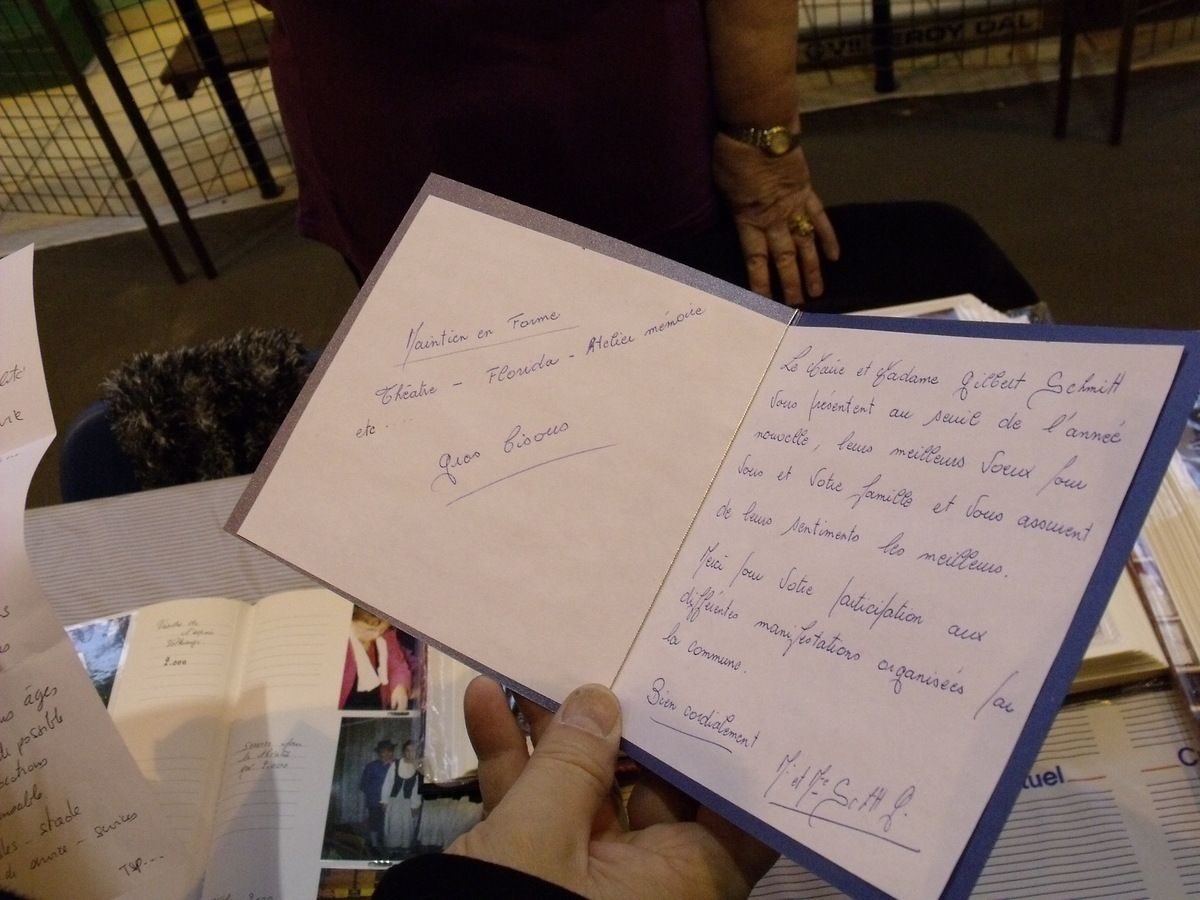 Maintien en Forme
Théâtre - Florida - Atelier mémoire
etc ....
gros bisous
Le Maire et Madame Gilbert Schmitt
vous présentent au seuil de l'année
nouvelle, leurs meilleurs voeux pour
vous et votre famille et vous assurent
de leurs sentiments les meilleurs.
Merci pour votre participation aux
différentes manifestations organisées par
la commune.
Bien cordialement
M. et Me Schtt G.
âges
possible
- stade
- services
TSP....
2.000
tuel
C